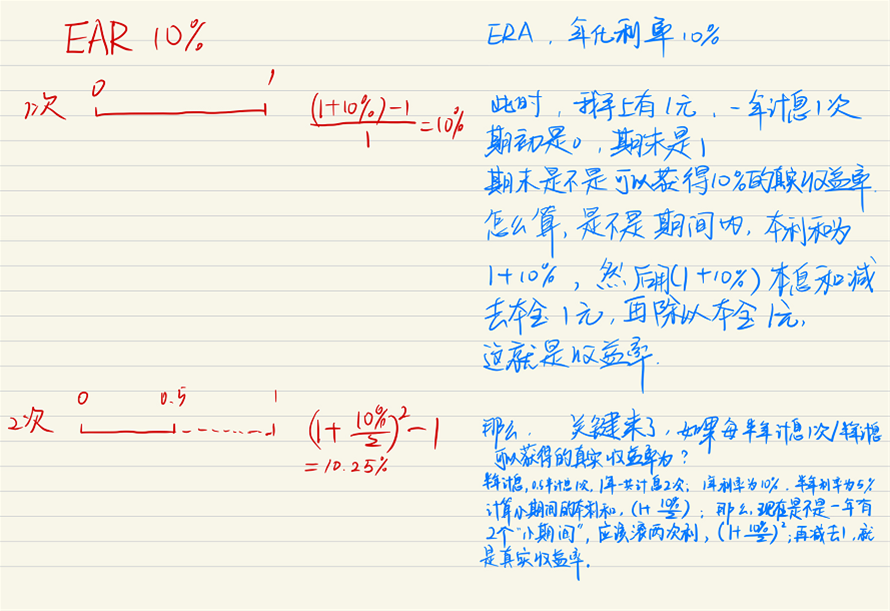 EAR 10%
0 1
1次
(1+10%)-1
1
=10%
0 0.5 1
2次
(1+10%/2)²-1
=10.25%
ERA, 年化利率10%
此时, 我手上有1元, 一年计息1次
期初是0, 期末是1
期末是不是可以获得10%的真实收益率.
怎么算, 是不是期间内, 本利和为
1+10%, 然后用(1+10%)本息和减
去本金1元, 再除以本金1元,
这就是收益率.
那么, 关键来了, 如果每半年计息1次/半年计息
可以获得的真实收益率为?
半年计息, 0.5年计息1次, 1年一共计息2次; 1年利率为10%, 半年利率为5%
计算小期间的本利和, (1+10%/2); 那么, 现在是不是一年有
2个"小期间", 应该滚两次利, (1+10%/2)²; 再减去1, 就
是真实收益率.